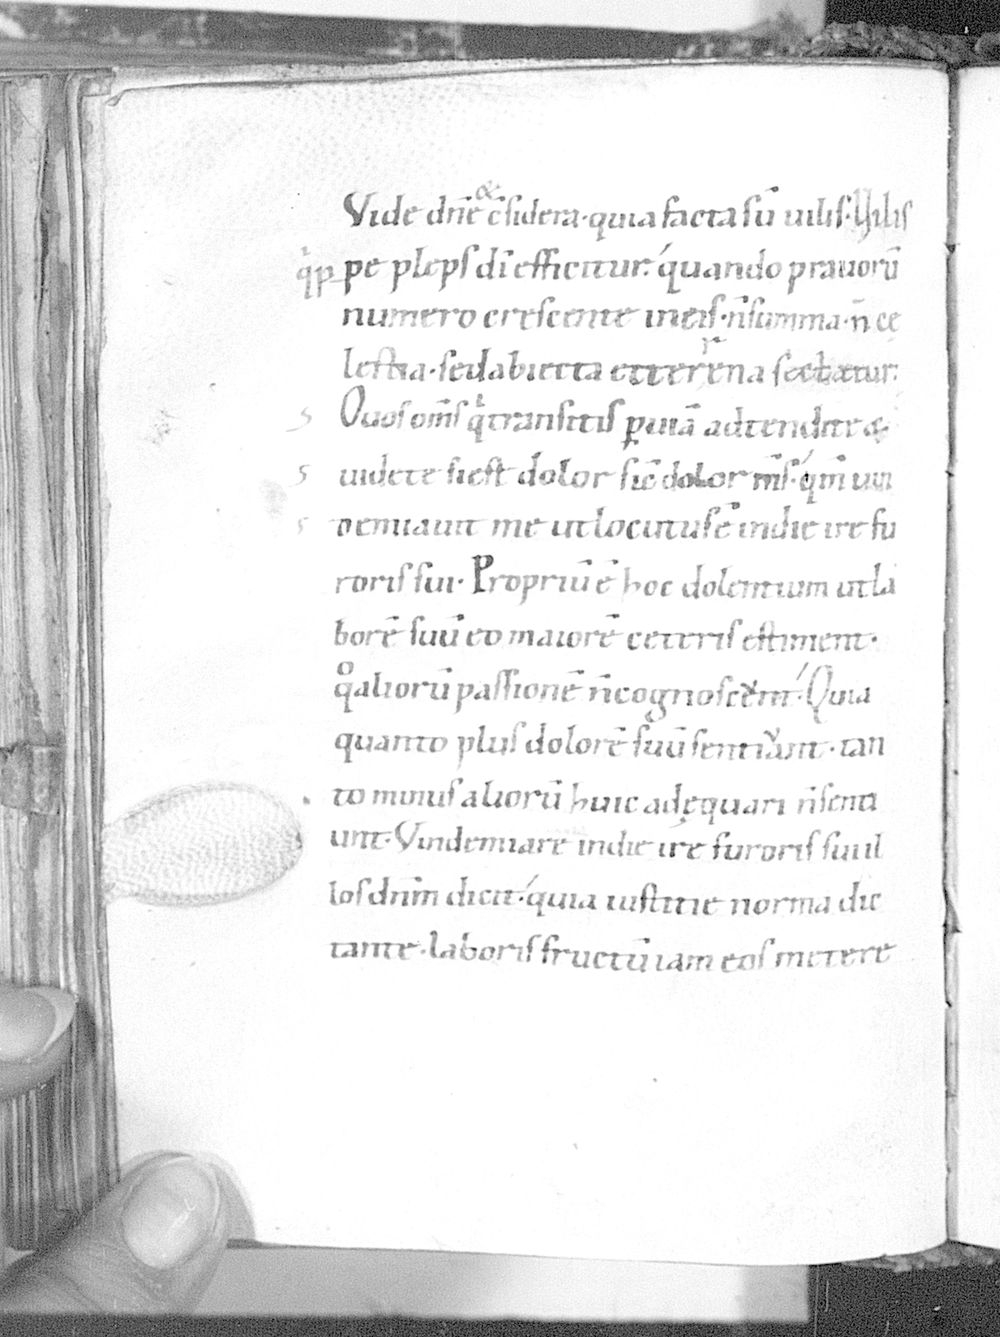 Vide dn̄e & c̄sidera · quia facta sū uilis · Uilis
q̇p pe plebs dī efficitur · quando prauorū
numero crescente in eis · n̄ summa · n̄ ce
lestia · sed abiecta et terrena sectatur ·
O uos om̄s q̇ transitis p̱ uiā adtendite &
uidete si est dolor sic̄ dolor m̄s · qm̄ uin
demiauit me ut locutus ē in die ire fu
roris sui · Propriū ē hoc dolentium ut la
borē suū eo maiorē ceteris estiment ·
qͦ aliorū passionē n̄ cognoscunt · Quia
quanto plus dolorē suū sentiunt · tan
to minus aliorū huic adęquari n̄ senti
unt · Vindemiare in die ire furoris sui il
los dn̄m dicit · quia iustitie norma dic
tante · laboris fructū iam eos metere